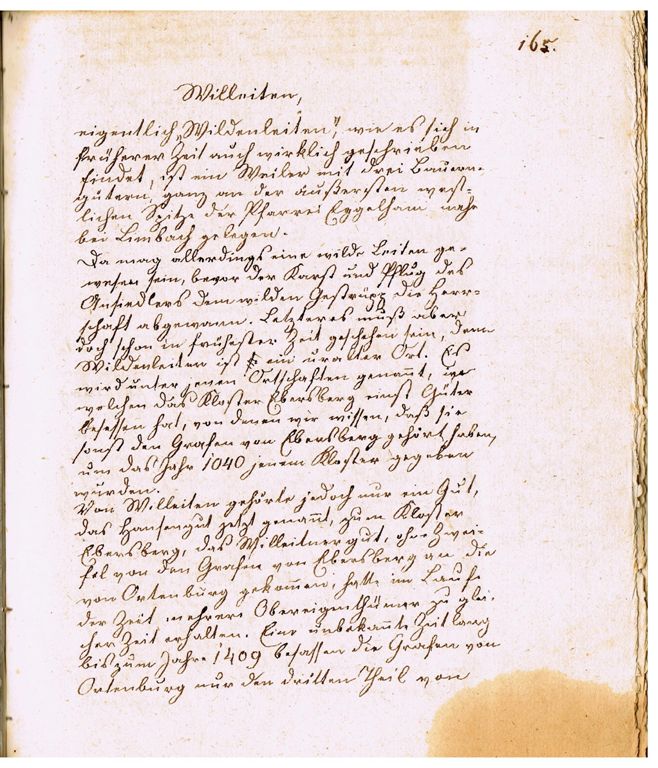 165.
Willeiten,
eigentlich „Wildenleiten", wie es sich in
früherer Zeit auch wirklich geschrieben
findet, ist ein Weiler mit drei Bauern-
gütern, ganz an der äußersten west-
lichen Spitze der Pfarrei Egglham nahe
bei Limbach gelegen.
Da mag allerdings eine wilde Leiten ge-
wesen sein, bevor der Karst und Pflug des
Ansiedlers dem wilden Gestrüpp die Herr-
schaft abgewann. Letzteres muß aber
doch schon in frühester Zeit geschehen sein, denn
Wildenleiten ist ein uralter Ort. Es
wird unter jenen Ortschaften genannt, wo
welchen das Kloster Ebersberg einst Güter
besessen hat, von denen wir wissen, daß sie
sonst den Grafen von Ebersberg gehört haben,
um das Jahr 1040 jenem Kloster gegeben
wurden.
Von Willeiten gehörte jedoch nur ein Gut,
das Hansengut jetzt genannt, zum Kloster
Ebersberg, das Willeitnergut, ohne Zwei-
fel von den Grafen von Ebersberg an die
von Ortenburg gekommen, hatte im Laufe
der Zeit mehrere Obereigenthümer zu glei-
cher Zeit erhalten. Eine unbekannte Zeit lang
bis zum Jahre 1409 besassen die Grafen von
Ortenburg nur den dritten Theil von